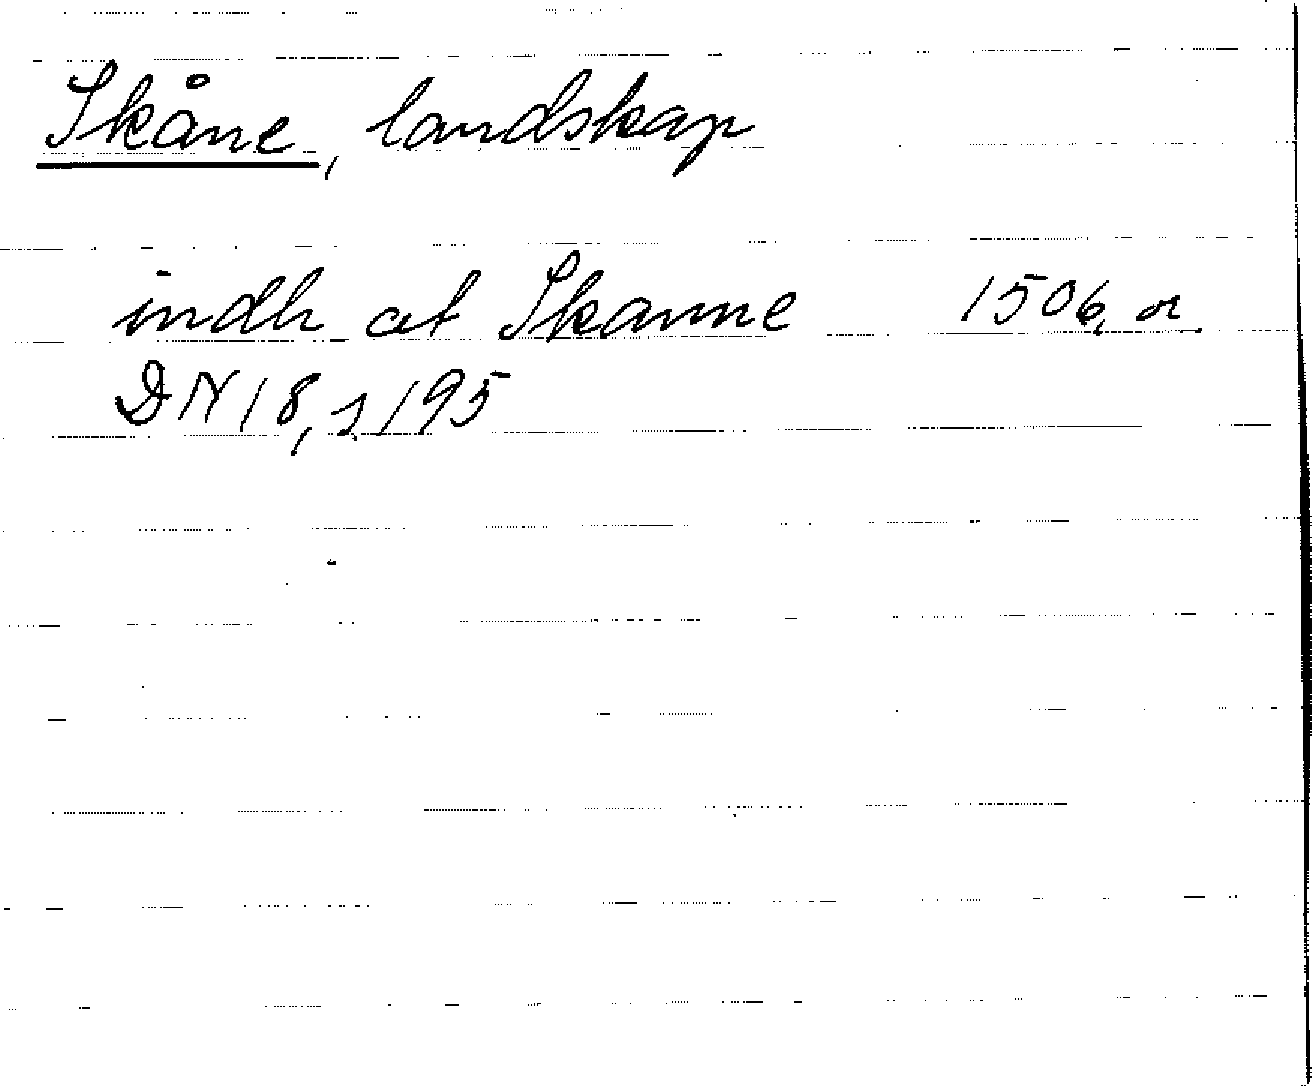 Skåne, landskap
indh at Skanne 1506, or.
DN 18, s. 195